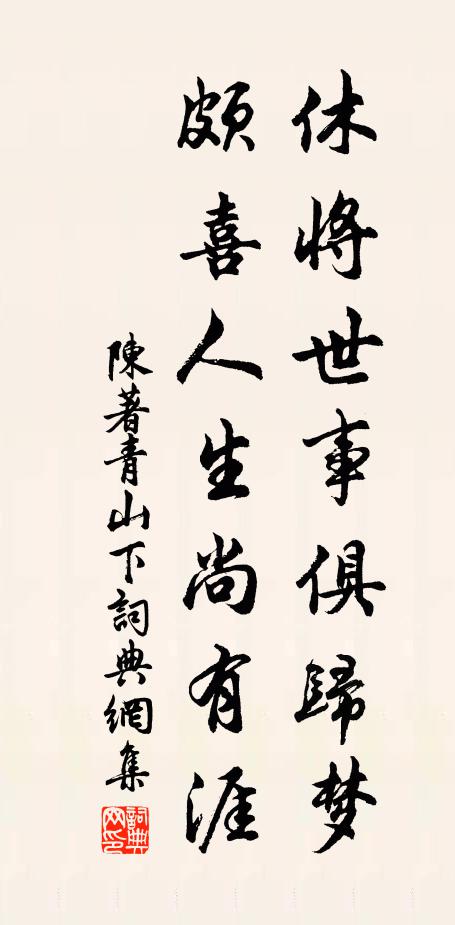 休将世事俱歸梦
頗喜人生尚有涯
陳著青山下詞典網集
詞典網印